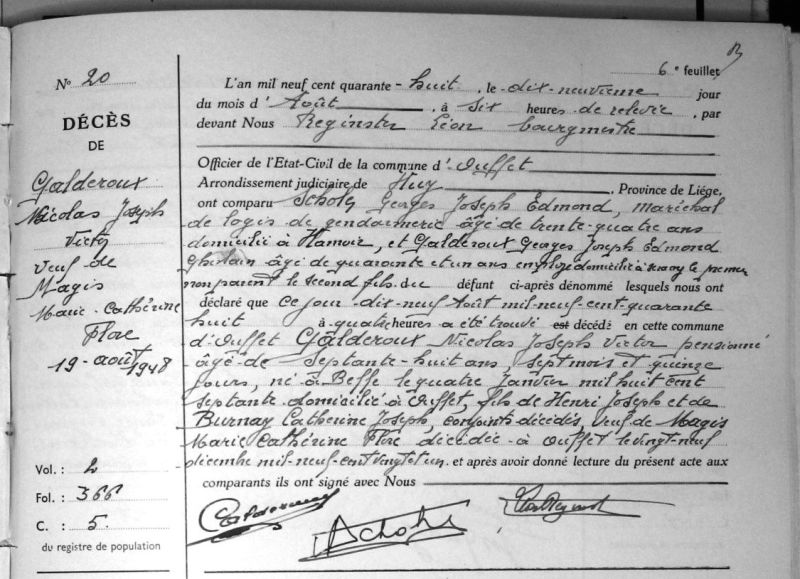 6e feuillet
No 20
DÉCÈS
DE
Galderoux
Nicolas Joseph
Victor
Veuf de
Magis
Marie-Cathérine
Flore
19-août 1948
Vol. : 2
Fol. : 366
C. : 5.
du registre de population
L'an mil neuf cent quarante-huit, le dix-neuvième jour
du mois d'Août, à six heures de relevée, par
devant Nous Reginster Léon bourgmestre
Officier de l'Etat-Civil de la commune d'Ouffet
Arrondissement judiciaire de Huy, Province de Liége,
ont comparu Scholz Georges Joseph Edmond, Maréchal
de logis de gendarmerie âgé de trente-quatre ans
domicilié à Hamoir, et Galderoux Georges Joseph Edmond
Ghislain âgé de quarante et un ans employé domicilié à le premier
non parent le second fils du défunt ci-après dénommé lesquels nous ont
déclaré que ce jour dix-neuf Août mil-neuf-cent-quarante
huit à quatre heures a été trouvé est décédé en cette commune
d'Ouffet Galderoux Nicolas Joseph Victor pensionné
âgé de septante-huit ans, sept mois et quinze
jours, né à Beffe le quatre Janvier mil huit cent
septante domicilié à Ouffet, fils de Henri Joseph et de
Burnay Catherine Joseph, conjoints décédés, Veuf de Magis
Marie Cathérine Flore décédée à Ouffet le vingt-neuf
décembre mil-neuf-cent vingt et un. et après avoir donné lecture du présent acte aux
comparants ils ont signé avec Nous
Galderoux